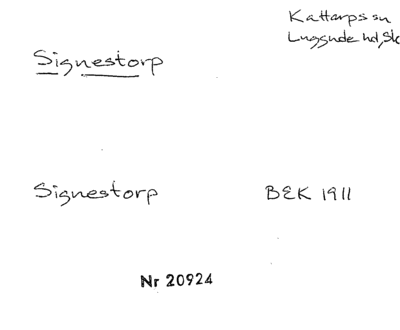 Kattarps sn
Luggude hd, Sk
Signestorp
Signestorp BEK 1911
Nr 20924